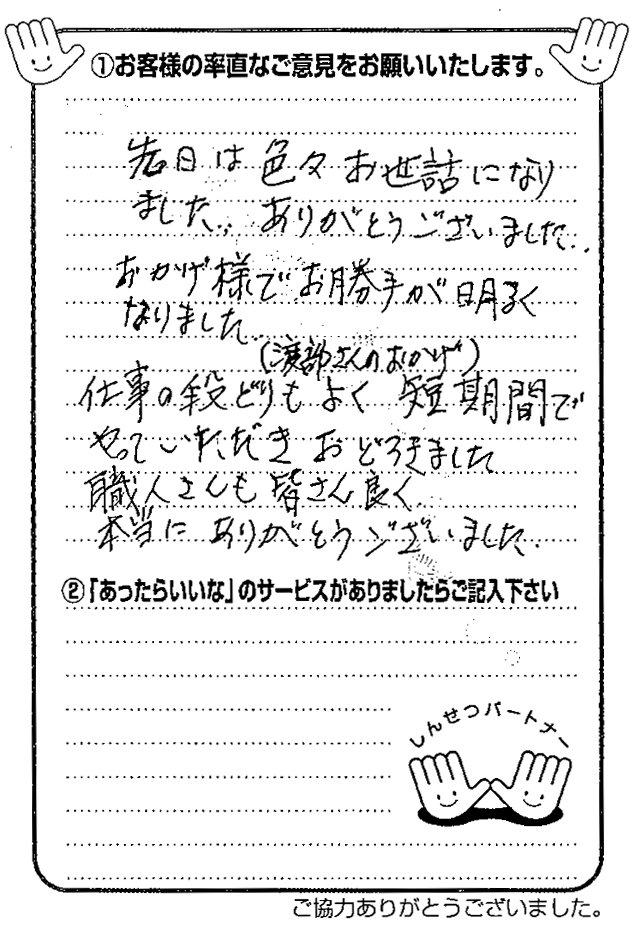 ①お客様の率直なご意見をお願いいたします。
先日は色々お世話になり
ました。ありがとうございました。
おかげ様でお勝手が明るく
なりました。
(渡部さんのおかげ)
仕事の段どりもよく 短期間で
やっていただき おどろきました
職人さんも皆さん良く
本当に ありがとうございました。
②「あったらいいな」のサービスがありましたらご記入下さい
しんせつパートナー
ご協力ありがとうございました。